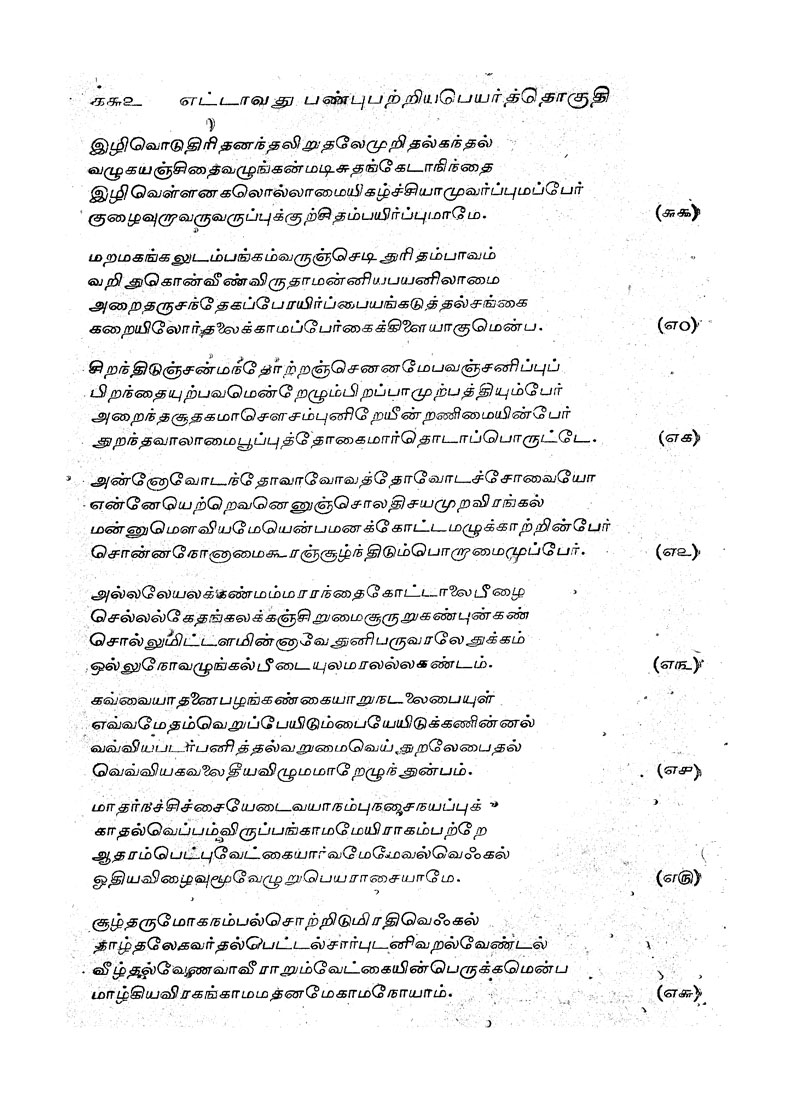 ௧௬௨ எட்டாவது பண்புபற்றியபெயர்த்தொகுதி
இழிவொடுதிரிதனந்தலிறுதலேமுறிதல்கந்தல்
வழுகயஞ்சிதைவழுங்கன்மடிசுதங்கேடாநிந்தை
இழிவெள்ளனகலொல்லாமையிகழ்ச்சியாமுவர்ப்புமப்பேர்
குழைவுரூவருவருப்புக்குற்சிதம்பயிர்ப்புமாமே. (௬௯)
மறமகங்கலுடம்பங்கம்வருஞ்செடிதுரிதம்பாவம்
வறிதுகொன்வீண்விருதாமன்னியபயனிலாமை
அறைதருசந்தேகப்பேரயிர்ப்பையங்கடுத்தல்சங்கை
கறையிலோர்தலைக்காமப்பேர்கைக்கிளையாகுமென்ப. (௭௦)
சிறந்திடுஞ்சன்மந்தோற்றஞ்செனனமேபவஞ்சனிப்புப்
பிறந்தையுற்பவமென்றேழும்பிறப்பாமுற்பத்தியும்பேர்
அறைந்தசூதகமாசௌசம்புனிறேயீன்றணிமையின்பேர்
துறந்தவாலாமைபூப்புத்தோகைமார்தொடாப்பொருட்டே. (௭௧)
அன்னோவோடந்தோவாவோவத்தோவோடச்சோவையோ
என்னேயெற்றெவனெனுஞ்சொலதிசயமுறவிரங்கல்
மன்னுமௌவியமேயென்பமனக்கோட்டமழுக்காற்றின்பேர்
சொன்னநோனாமைகூரஞ்சூழ்ந்திடும்பொறாமைமுப்பேர். (௭௨)
அல்லலேயலக்கண்மம்மரரந்தைகோட்டாலைபீழை
செல்லல்கேதங்கலக்கஞ்சிறுமைசூருறுகண்புன்கண்
சொல்லுமிட்டளமின்னாவேதுனிபருவாலேதுக்கம்
ஒல்லுநோவழுங்கல்பீடையுலமாலல்லகண்டம். (௭௩)
கவ்வையாதனைபழங்கண்கையாறுநடலைபையுள்
எவ்வமேதம்வெறுப்பேயிடும்பையேயிடுக்கணின்னல்
வவ்வியபடர்பனித்தல்வறுமைவெய்துறலேபைதல்
வெவ்வியகவலைதீயவிழுமமாறேழுந்துன்பம். (௭௪)
மாதர்நச்சிச்சையேடைவயாநம்புநசைநயப்புக்
காதல்வெப்பம்விருப்பங்காமமேயிராகம்பற்றே
ஆதரம்பெட்புவேட்கையார்வமேமேவல்வெஃகல்
ஓதியவிழைவுமூவேழுறுபெயராசையாமே. (௭௫)
சூழ்தருமோகநம்பல்சொற்றிடுமிரதிவெஃகல்
தாழ்தலேகவர்தல்பெட்டல்சார்புடனிவறல்வேண்டல்
வீழ்தல்வேணவாவீராறும்வேட்கையின்பெருக்கமென்ப
மாழ்கியவிரகங்காமமதனமேகாமநோயாம். (௭௬)